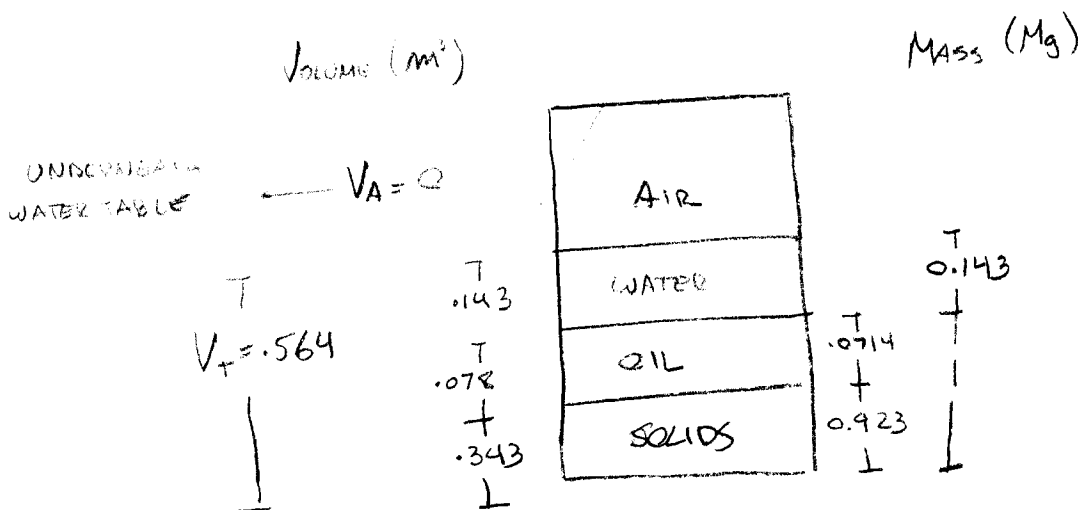 VOLUME (m³)
MASS (Mg)
UNDERNEATH
WATER TABLE
V_A = 0
AIR
WATER
OIL
SOLIDS
V_T = .564
.143
.078
.343
0.143
.0714
0.923